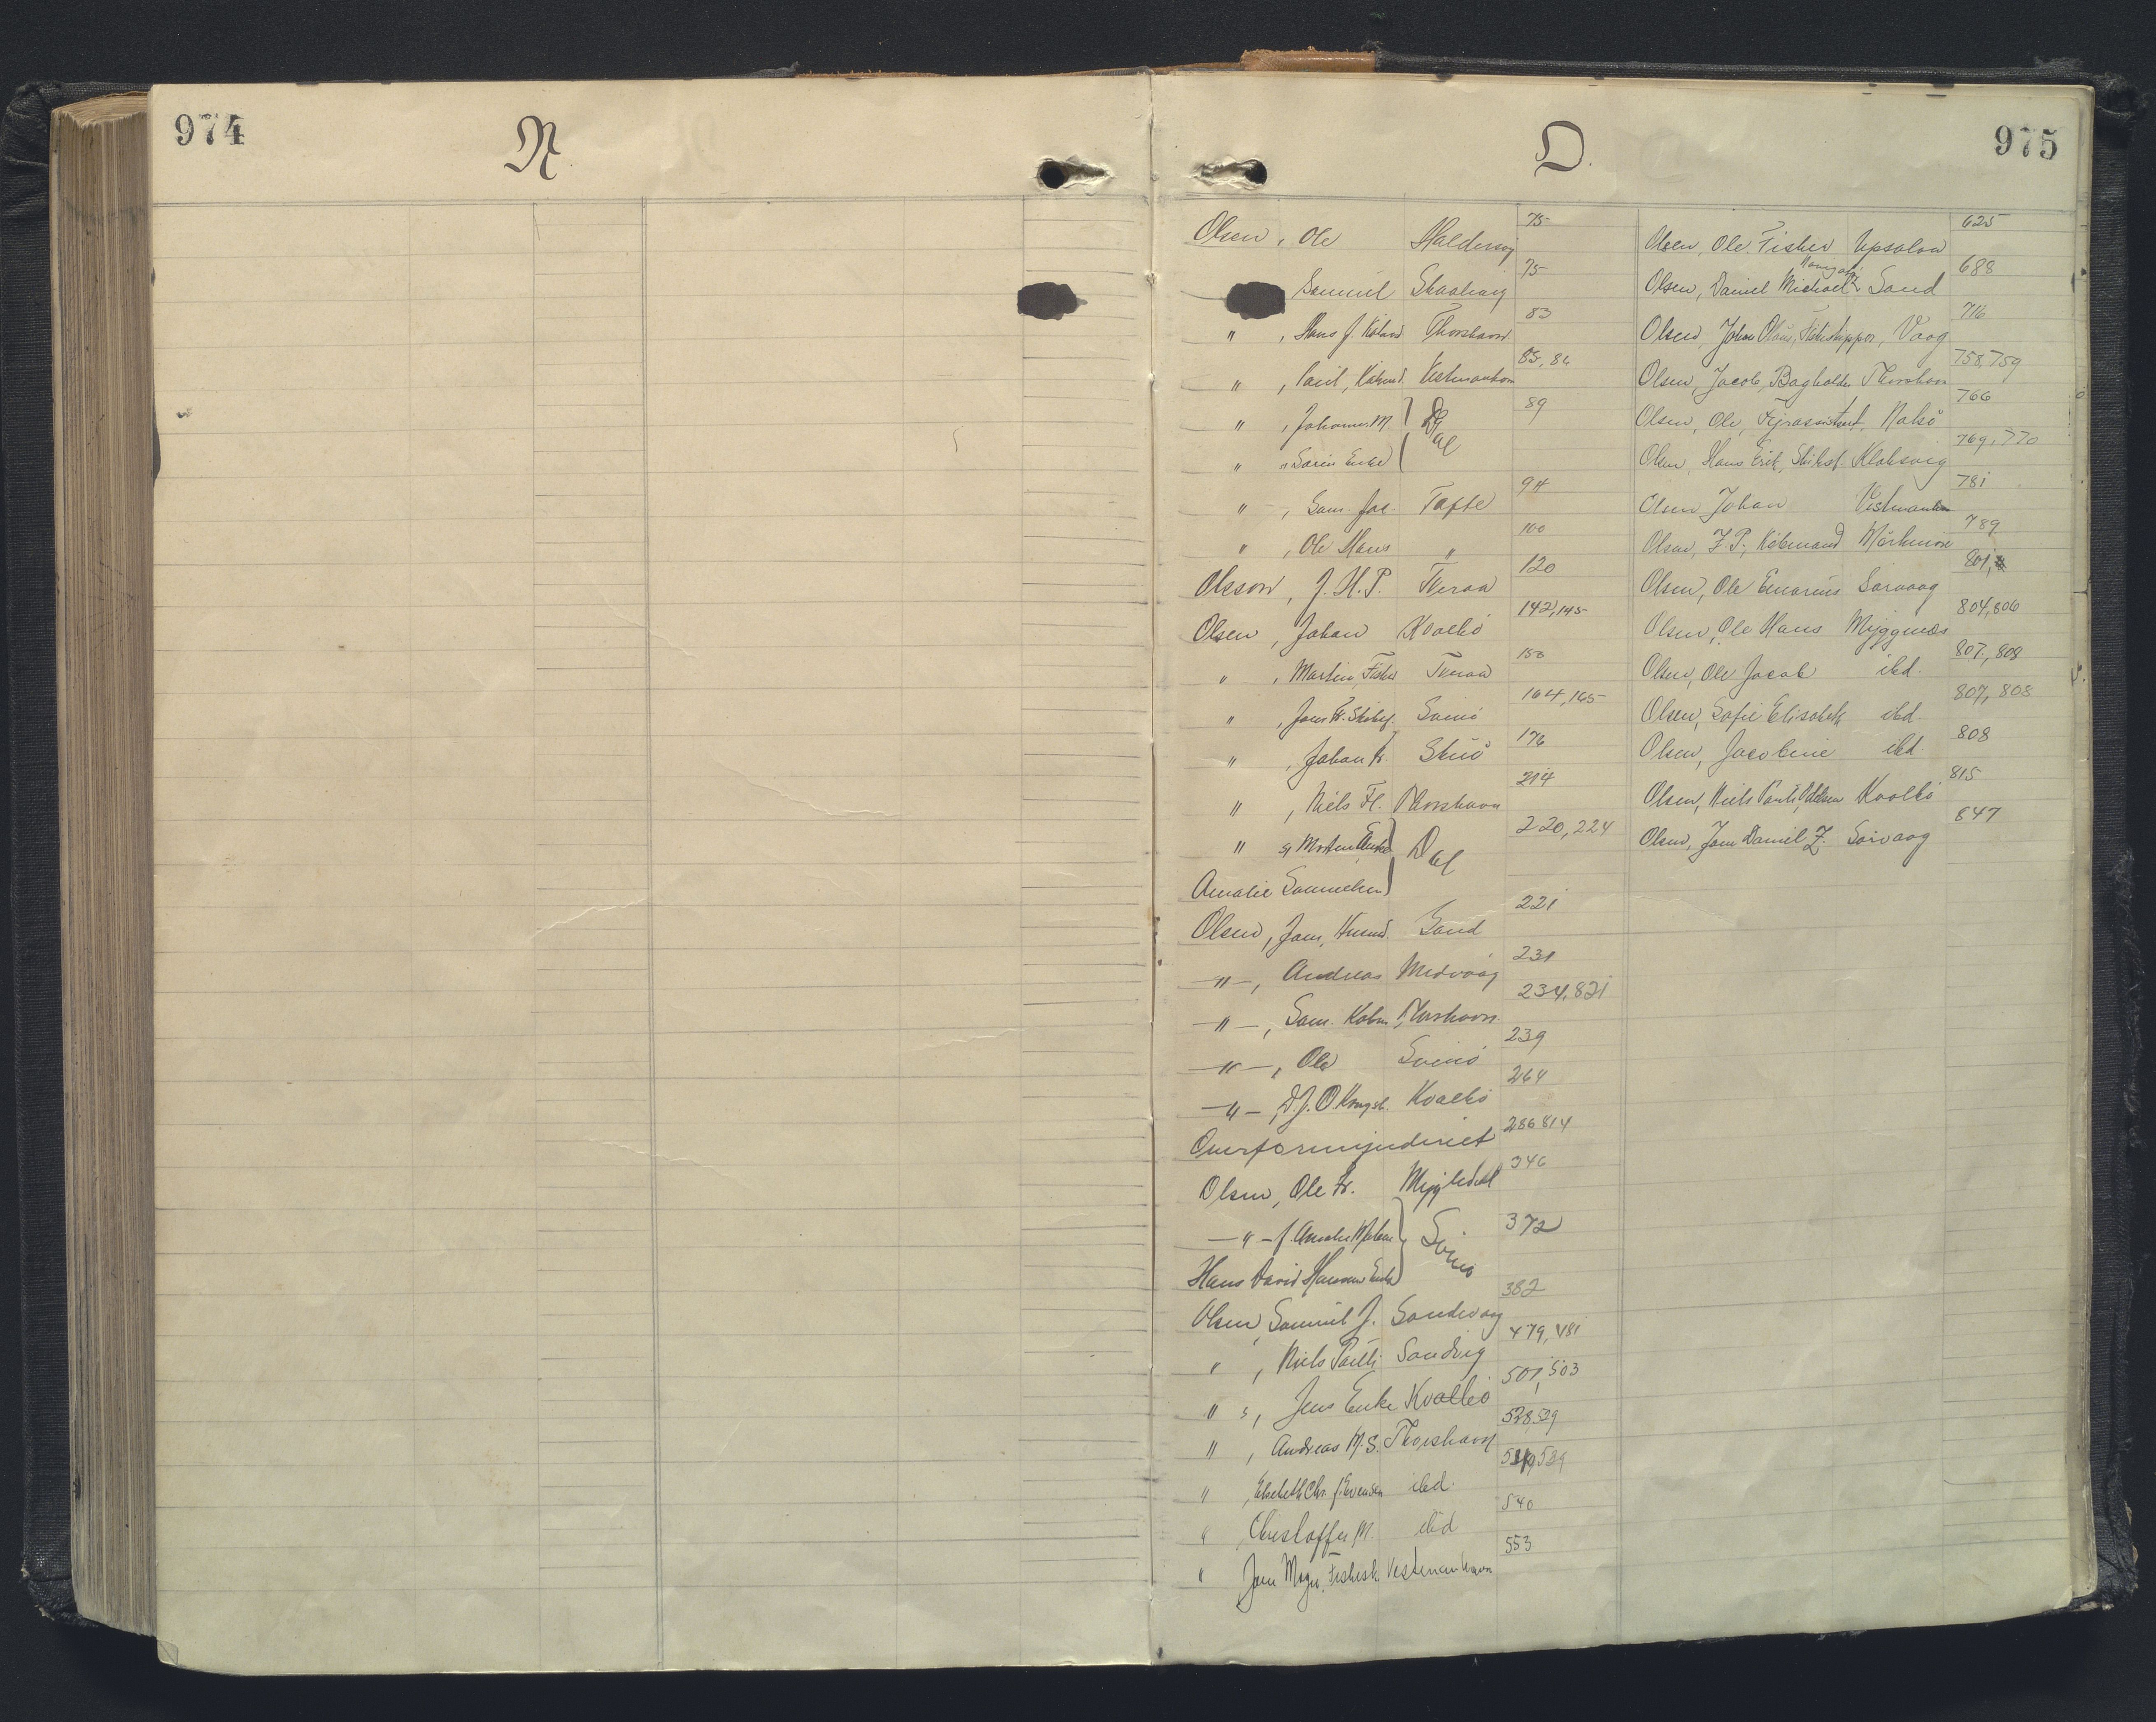 974
N.
O.
975
Olsen, Ole Haldersvig 75
Samuel Skaalevig 75
" , Hans J. Købmd Thorshavn 83
" , Paul, Købmd. Vestmanhavn 85, 86
" , Johannes M. } Dal 89
" s Enke
" , Sam. Jac. Tofte 94
" , Ole Hans " 100
Olsson, J. H. P. Tveraa 120
Olsen, Johan Kvalbø 142, 145
" , Martin, Fisker Tveraa 150
" , Jens Fr. Svinø 164, 165
" , Johan Fr. Skuø 176
" , Niels Fl. Thorshavn 214
" s Morten Enke } Dal 220, 224
Amalie Samuelsen }
Olsen, Jens, Sand 221
-"-, Andreas Midvaag 231
-"-, Sam. Købm. Thorshavn 234, 821
-"-, Ole Svinø 239
-"-, D. J. O. Kongsb. Kvalbø 264
Overformynderiet 286 814
Olsen, Ole Fr. Mygledal 346
-"- f. } Svinø 372
Hans David Hansens Enke }
Olsen, Samuel J. Sandvaag 382
" , Niels Poulli Sandvig 479, 481
" s, Jens Enke Kvalbø 501, 503
" , Andreas M. S. Thorshavn 528, 529
" , Elsebeth Chr. f. Evensen ibd. 529
" Christoffer M. ibd 540
" Jens Mogn. Fiskesk. Vestmanhavn 553
Olsen, Ole Fisker Upsalon 625
Olsen, Daniel Michael Sand 688
Olsen, Johan Olaus, Fiskeskipper, Vaag 716
Olsen, Jacob, Bogholder Thorshavn 758, 759
Olsen, Ole, Fyrassistent, Nolsø 766
Olsen, Hans Erik, Skibsf. Klaksvig 769, 770
Olsen Johan Vestmanhavn 781
Olsen, Z. P., Købmand Mörkenøre 789
Olsen, Ole Emarius Sørvaag 801,
Olsen, Ole Hans Myggenæs 804, 806
Olsen, Ole Jacob ibd. 807, 808
Olsen, Sofie Elisabeth ibd. 807, 808
Olsen, Jacobine ibd. 808
Olsen, Niels Pauli Kvalbø 815
Olsen, Jens Daniel Z. Sørvaag 847